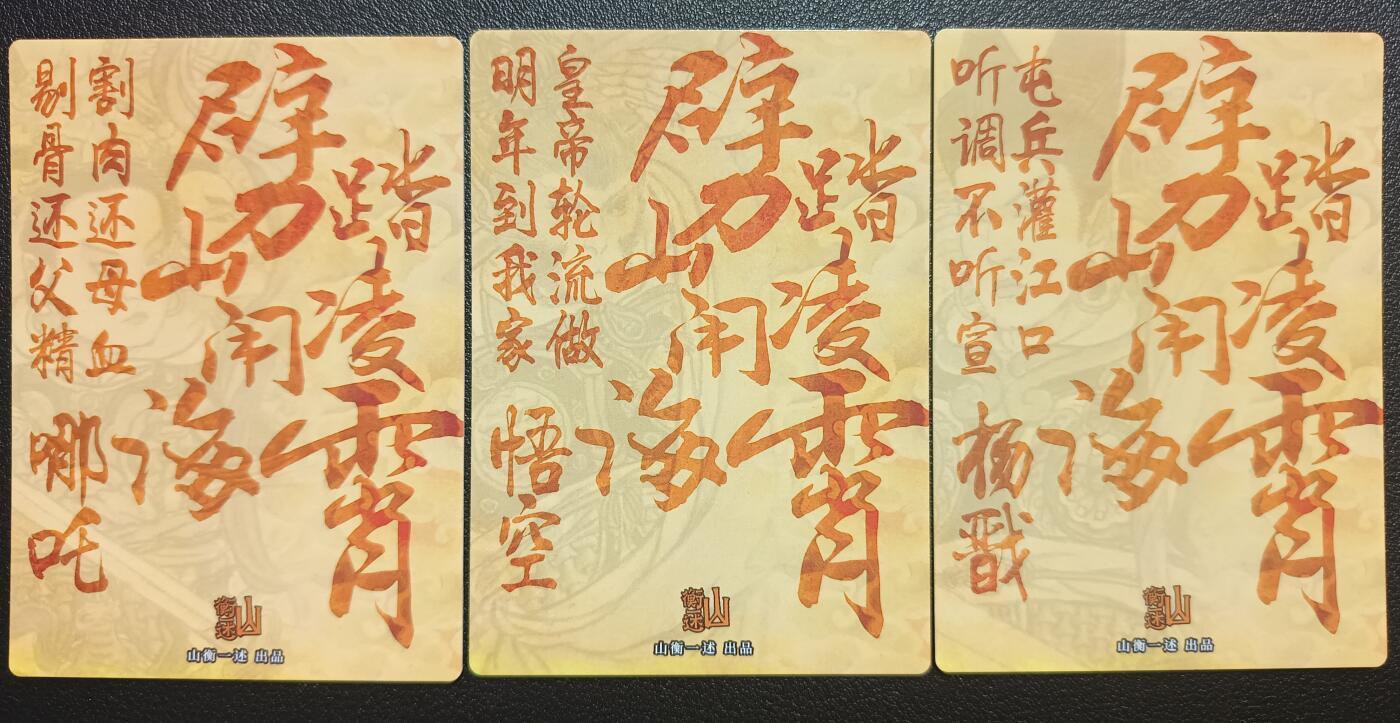 踏凌霄
劈山闹海
割肉还母血
剔骨还父精
哪吒
山衡一述
山衡一述 出品
踏凌霄
劈山闹海
皇帝轮流做
明年到我家
悟空
山衡一述
山衡一述 出品
踏凌霄
劈山闹海
屯兵灌江口
听调不听宣
杨戬
山衡一述
山衡一述 出品